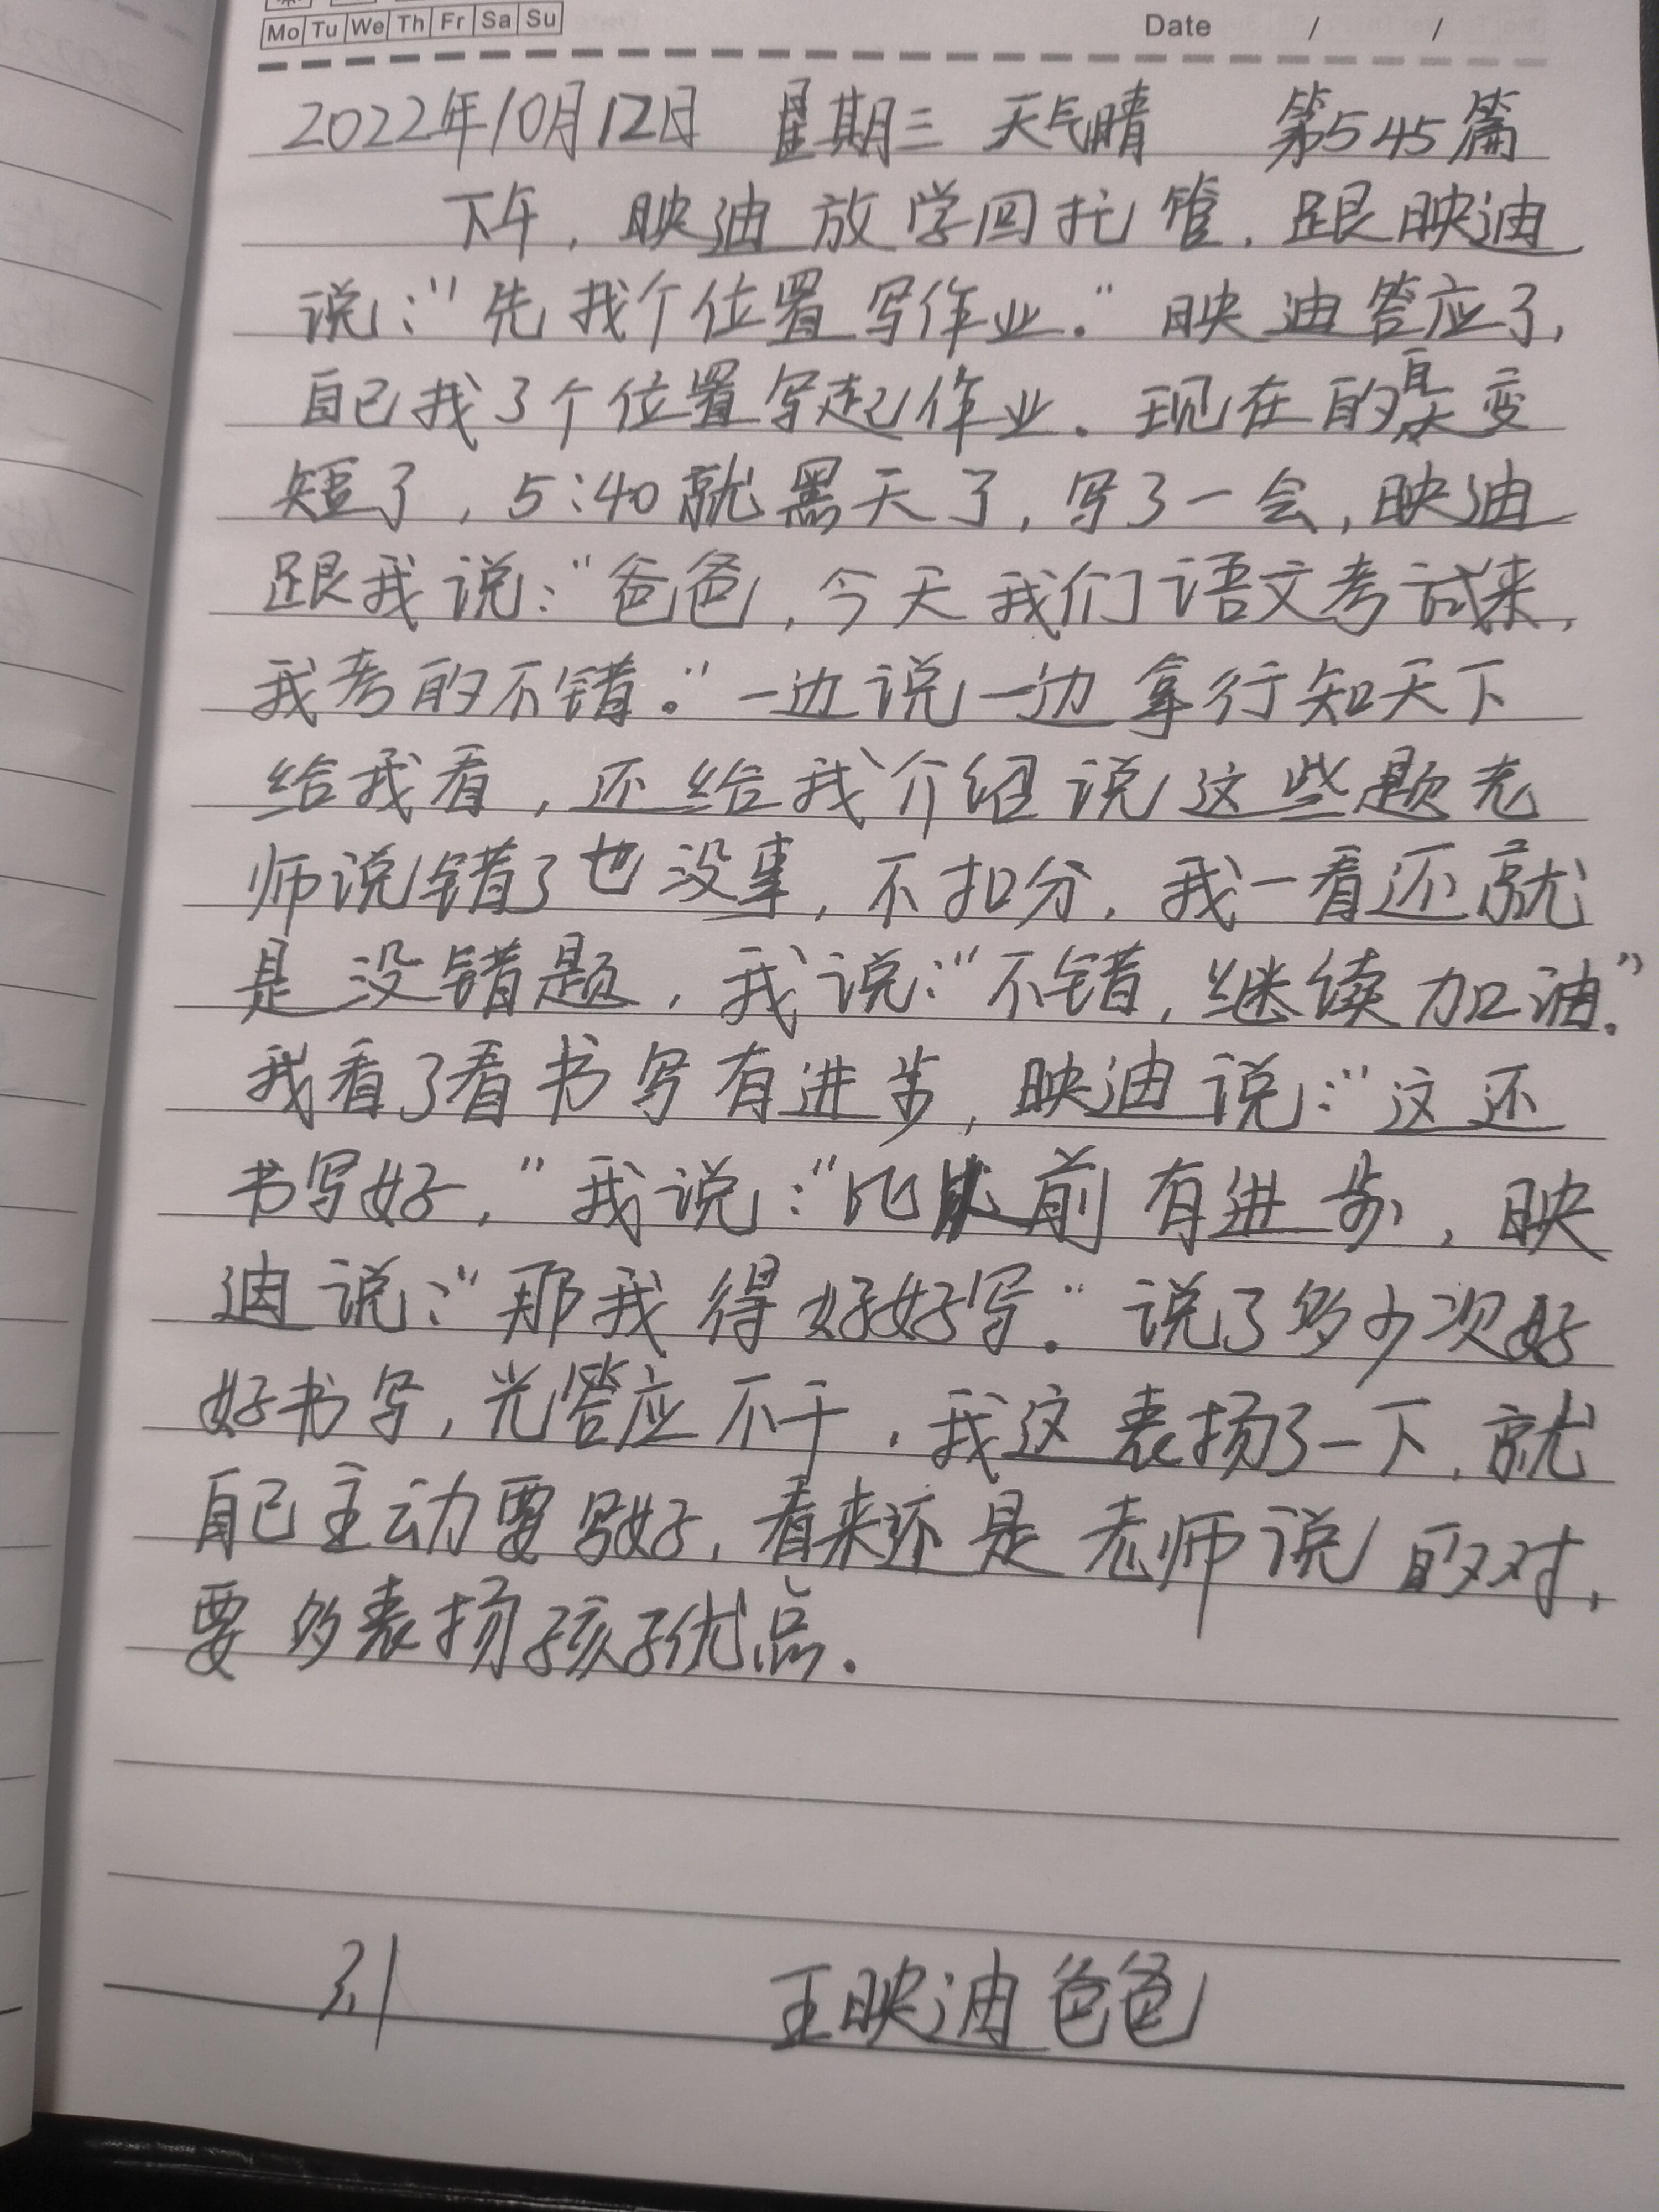 Mo Tu We Th Fr Sa Su Date / /
2022年10月12日 星期三 天气晴 第545篇
下午，映迪放学回托管，跟映迪
说：“先找个位置写作业.”映迪答应了，
自己找了个位置写起作业.现在的白天变
短了，5:40就黑天了，写了一会，映迪
跟我说：“爸爸，今天我们语文考试来，
我考的不错。”一边说一边拿行知天下
给我看，还给我介绍说这些题老
师说错了也没事，不扣分，我一看还就
是没错题，我说：“不错，继续加油.”
我看了看书写有进步，映迪说：“这还
书写好，”我说：“比以前有进步，映
迪说：“那我得好好写.”说了多少次好
好书写，光答应不干，我这表扬了一下，就
自己主动要写好，看来还是老师说的对，
要多表扬孩子优点.
王映迪爸爸